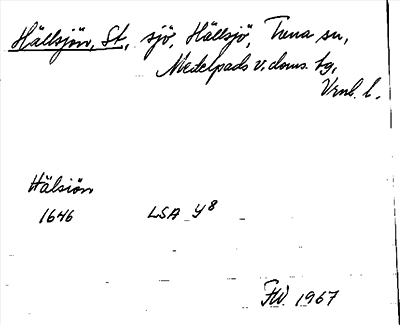 Hällsjön, St., sjö, Hällsjö, Tuna sn,
Medelpads v. doms. hg,
Vrnl. l.
Hälsiön
1646 LSA Y8
FW. 1967